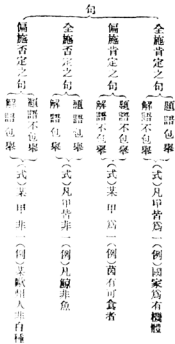 句
全施肯定之句
題語包舉
解語不包舉
(式)凡甲皆爲一(例)國家爲有機體
偏施肯定之句
題語不包舉
解語不包舉
(式)某甲爲一(例)茵有可食者
全施否定之句
題語包舉
解語包舉
(式)凡甲皆非一(例)凡鯨非魚
偏施否定之句
題語不包舉
解語包舉
(式)某甲非一(例)某歐州人非白種